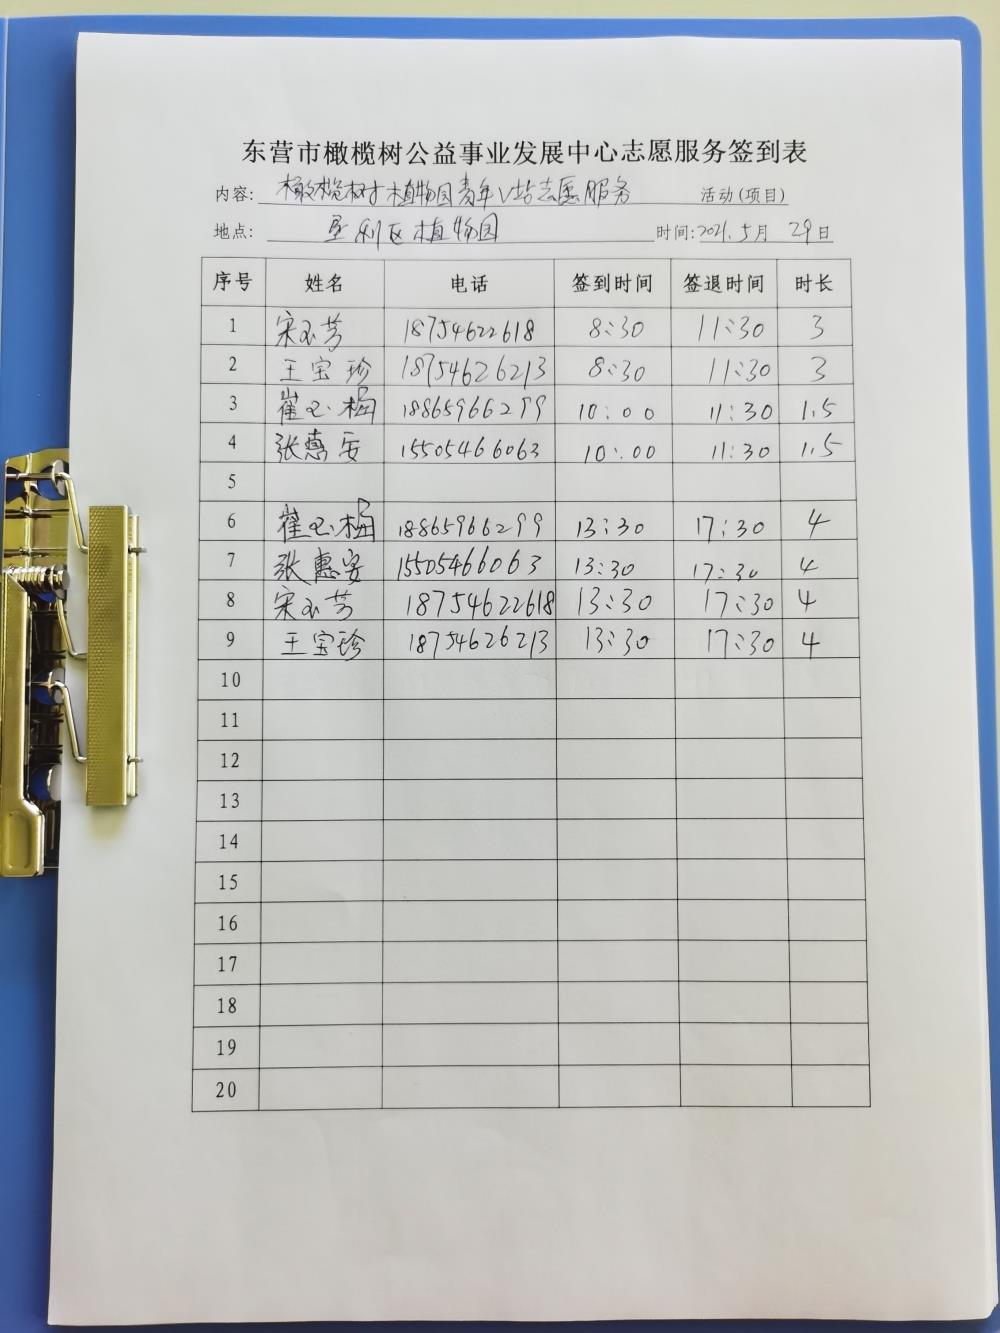 东营市橄榄树公益事业发展中心志愿服务签到表
内容: 橄榄树植物园青年V站志愿服务 活动(项目)
地点: 垦利区植物园 时间:2021.5月 29日
序号 姓名 电话 签到时间 签退时间 时长
1 宋玉芳 18754622618 8:30 11:30 3
2 王宝珍 18754626213 8:30 11:30 3
3 崔玉梅 18865966299 10:00 11:30 1.5
4 张惠安 15505466063 10:00 11:30 1.5
5
6 崔玉梅 18865966299 13:30 17:30 4
7 张惠安 15505466063 13:30 17:30 4
8 宋玉芳 18754622618 13:30 17:30 4
9 王宝珍 18754626213 13:30 17:30 4
10
11
12
13
14
15
16
17
18
19
20